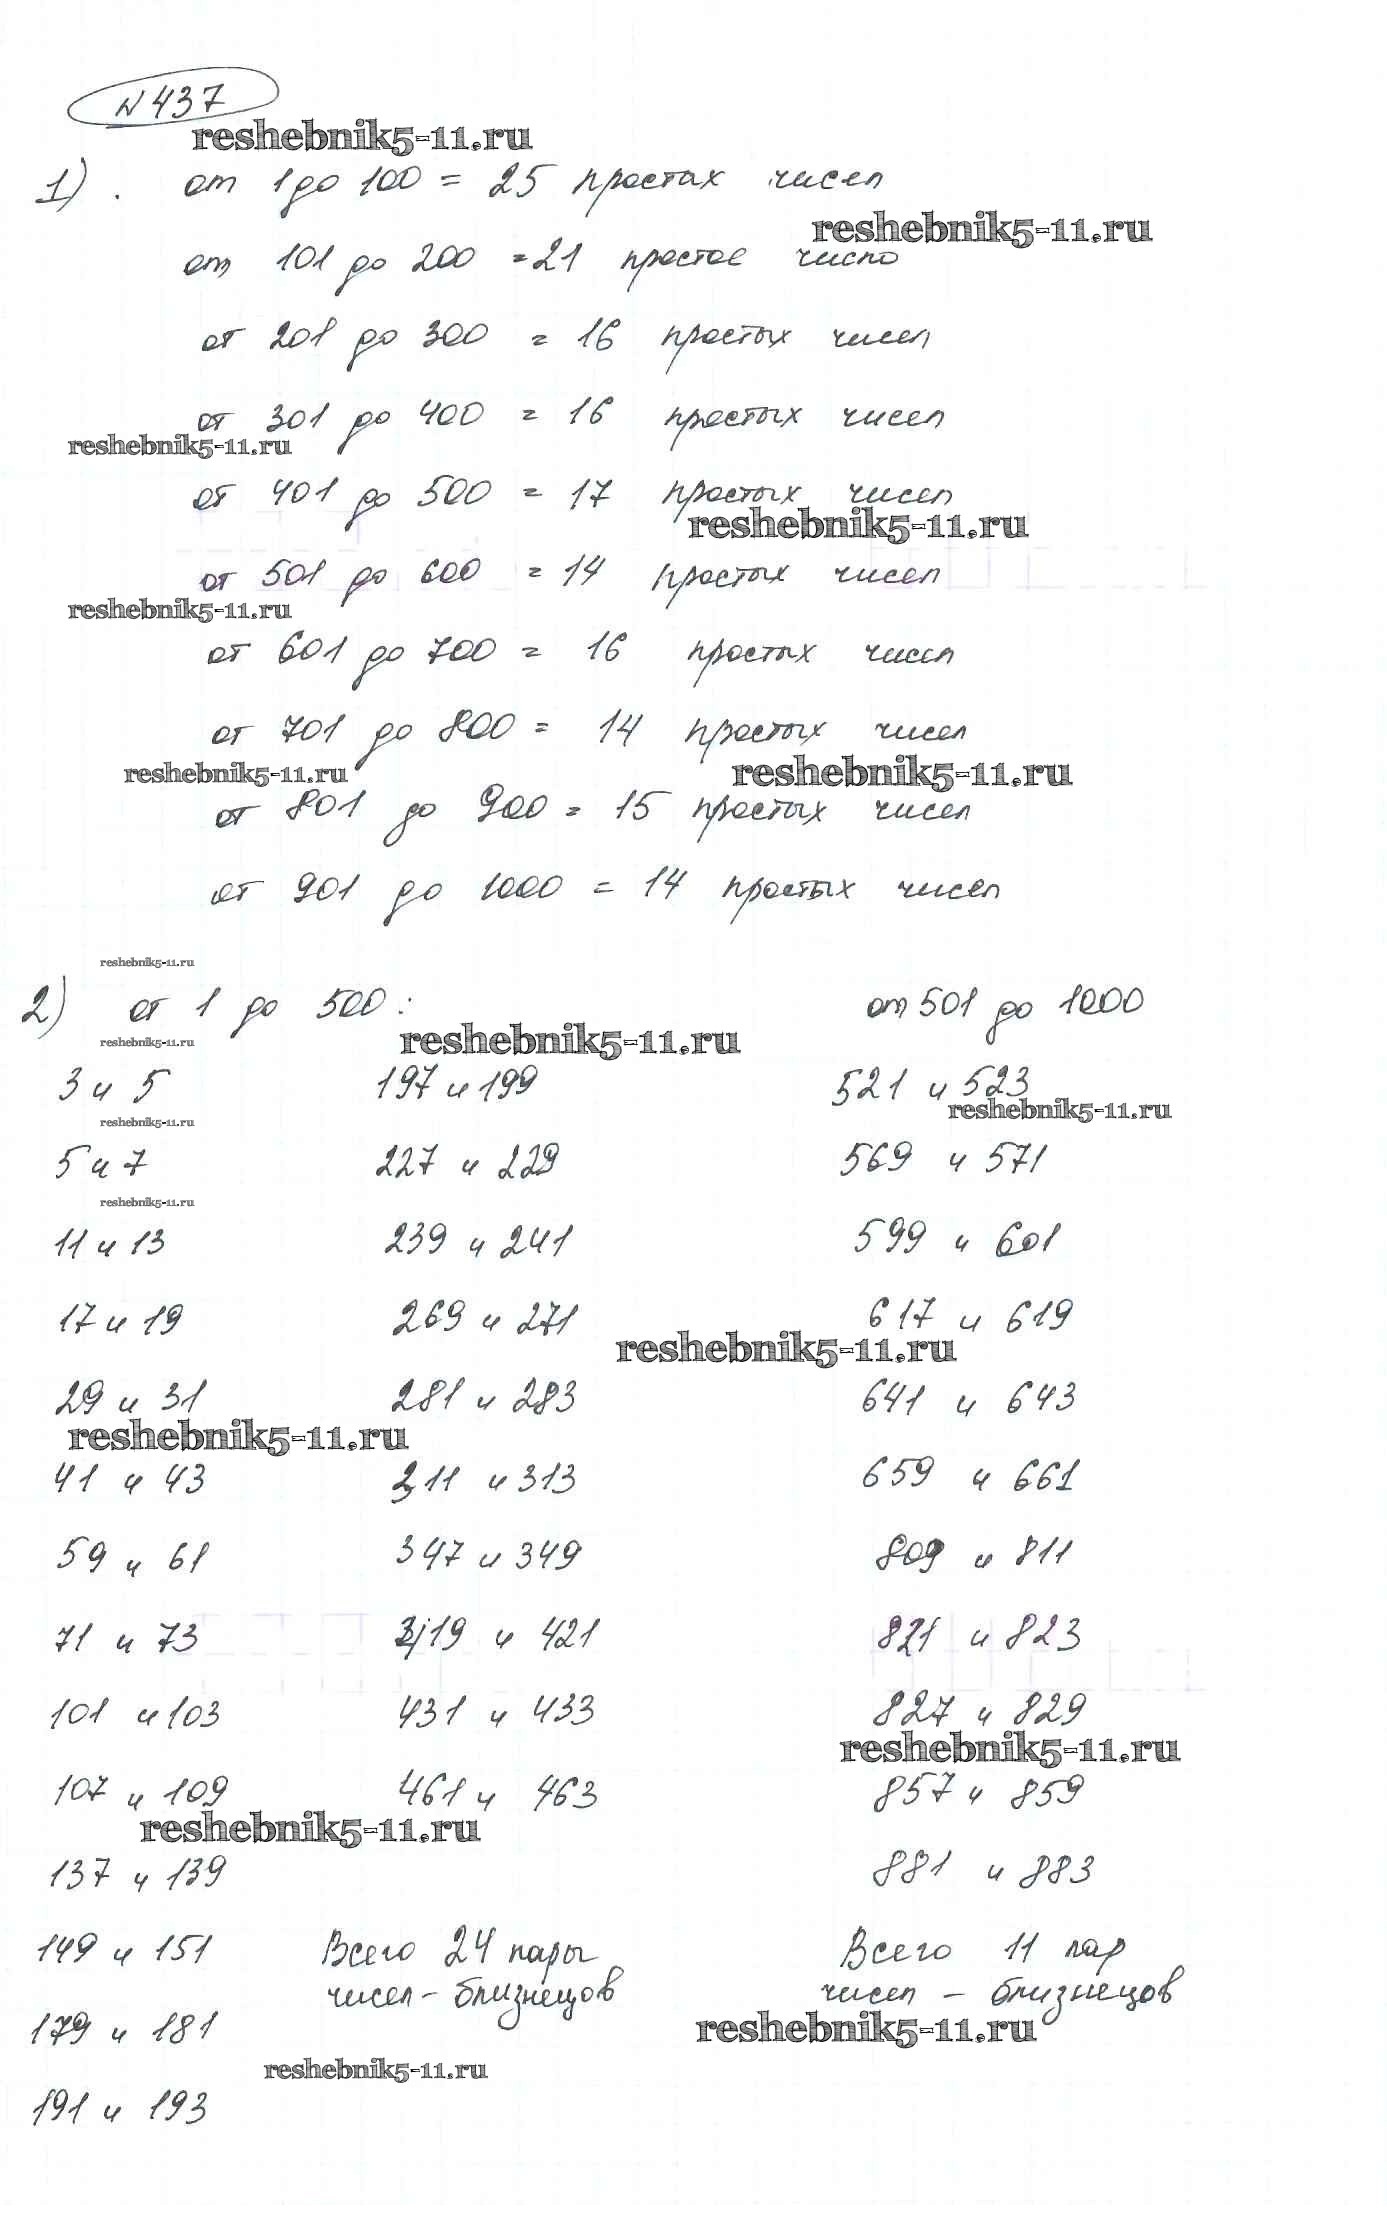 № 437
reshebnik5-11.ru
1). от 1 до 100 = 25 простах чисел
reshebnik5-11.ru
от 101 до 200 = 21 простое число
от 201 до 300 = 16 простых чисел
от 301 до 400 = 16 простых чисел
reshebnik5-11.ru
от 401 до 500 = 17 простых чисел
reshebnik5-11.ru
от 501 до 600 = 14 простых чисел
reshebnik5-11.ru
от 601 до 700 = 16 простых чисел
от 701 до 800 = 14 простых чисел
reshebnik5-11.ru reshebnik5-11.ru
от 801 до 900 = 15 простых чисел
от 901 до 1000 = 14 простых чисел
reshebnik5-11.ru
2) от 1 до 500: от 501 до 1000
reshebnik5-11.ru reshebnik5-11.ru
3 и 5 197 и 199 521 и 523
reshebnik5-11.ru reshebnik5-11.ru
5 и 7 227 и 229 569 и 571
reshebnik5-11.ru
11 и 13 239 и 241 599 и 601
17 и 19 269 и 271 617 и 619
reshebnik5-11.ru
29 и 31 281 и 283 641 и 643
reshebnik5-11.ru
41 и 43 311 и 313 659 и 661
59 и 61 347 и 349 809 и 811
71 и 73 и 421 821 и 823
101 и 103 431 и 433 827 и 829
reshebnik5-11.ru
107 и 109 461 и 463 857 и 859
reshebnik5-11.ru
137 и 139 881 и 883
149 и 151 Всего 24 пары Всего 11 пар
чисел - близнецов чисел - близнецов
179 и 181 reshebnik5-11.ru
reshebnik5-11.ru
191 и 193